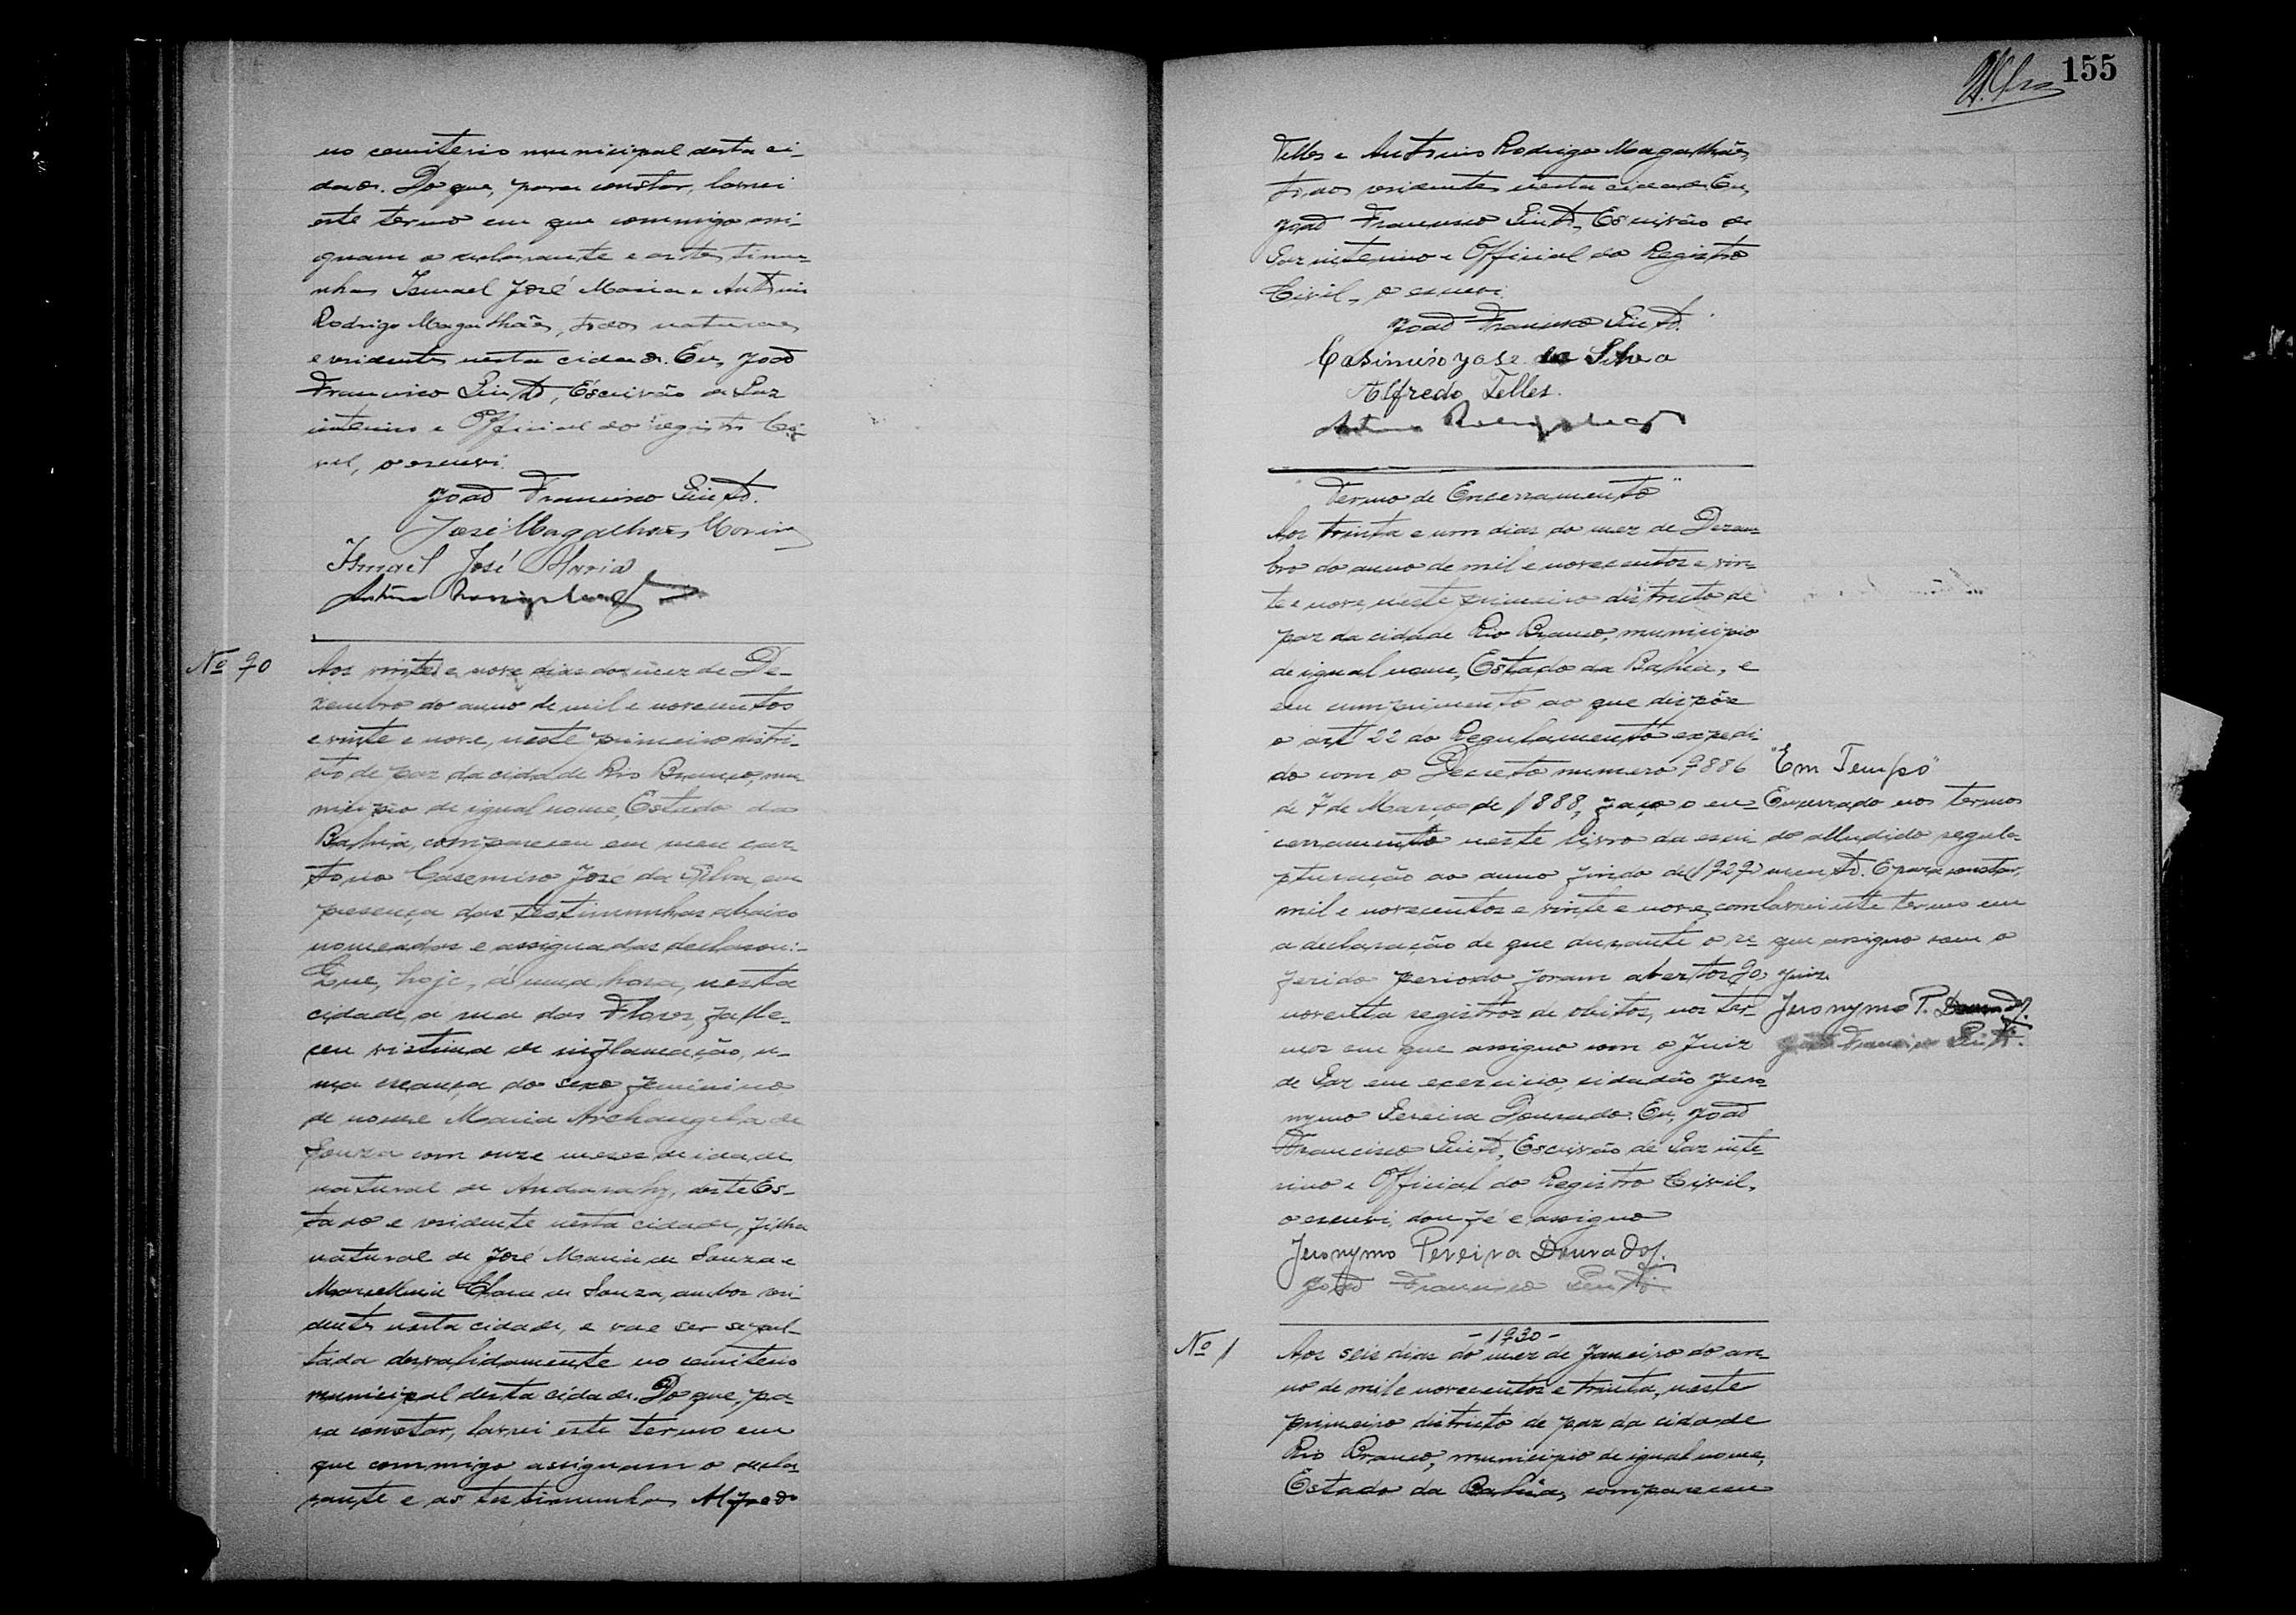 no cemiterio municipal desta ci-
dade. Do que, para constar, lavrei
este termo em que commigo assi-
gnam o declarante e as testimu-
nhas Ismael José Maria e Antonio
Rodrigo Magalhães, todos naturaes
e residentes nesta cidade. Eu, João
Francisco Pinto, Escrivão de Paz
interino e Official do registro Ci-
vil, o escrevi.
João Francisco Pinto.
José Magalhães
Ismael José Maria
Antonio
Nº 90
Aos vinte e nove dias do mez de De-
zembro do anno de mil e novecentos
e vinte e nove, neste primeiro distri-
cto de paz da cidade Rio Branco, mu
nicipio de igual nome, Estado da
Bahia, compareceu em meu car-
torio Casemiro José da Silva, em
presença das testimunhas abaixo
nomeadas e assignadas declarou:-
Que, hoje, á uma hora, nesta
cidade, a rua das Flores, falle-
ceu victima de inflamação, u-
ma creança do sexo feminino
de nome Maria Archangela de
Souza com onze mezes de idade
natural de Andarahy, deste Es-
tado e residente nesta cidade, filha
natural de José Maria de Souza e
Clara de Souza, ambos resi-
dentes nesta cidade, e vae ser sepul-
tada desvalidamente no cemiterio
municipal desta cidade. Do que, pa-
ra constar, lavrei este termo em
que commigo assignam o decla-
rante e as testimunhas Alfredo
155
Telles e Antonio Rodrigo Magalhães,
todos residentes nesta cidade. Eu,
João Francisco Pinto, Escrivão de
Paz interino e Official do Registro
Civil, o escrevi.
João Francisco Pinto.
Casimiro Jose da Silva
Alfredo Telles.
Antonio
"Termo de Encerramento"
Aos trinta e um dias do mez de Dezem-
bro do anno de mil e novecentos e vin-
te e nove, neste primeiro districto de
paz da cidade Rio Branco, municipio
de igual nome, Estado da Bahia, e
em cumprimento ao que dispõe
o art 22 do Regulamento expedi-
do com o Decreto numero 9886
de 7 de Março de 1888, faço o en-
cerramento neste livro da escri
pturação ao anno findo de (1929)
mil e novecentos e vinte e nove, com
a declaração de que durante o re-
ferido periodo foram abertos 90,
noventa registros de obitos, nos ter-
mos em que assigno com o Juiz
de Paz em exercicio, cidadão Jero-
nymo Pereira Dourado. Eu, João
Francisco Pinto, Escrivão de Paz inte-
rino e Official do Registro Civil,
o escrevi, dou fé e assigno
Jeronymo Pereira Dourado.
João Francisco Pinto.
"Em Tempo"
Encerrado nos termos
do alludido regula-
mento. E para constar,
lavrei este termo em
que assigno com o
Juiz.
Jeronymo P. Dourado.
João Francisco Pinto.
- 1930 -
Nº 1
Aos seis dias do mez de Janeiro do an-
no de mil e novecentos e trinta, neste
primeiro districto de paz da cidade
Rio Branco, municipio de igual nome,
Estado da Bahia, compareceu